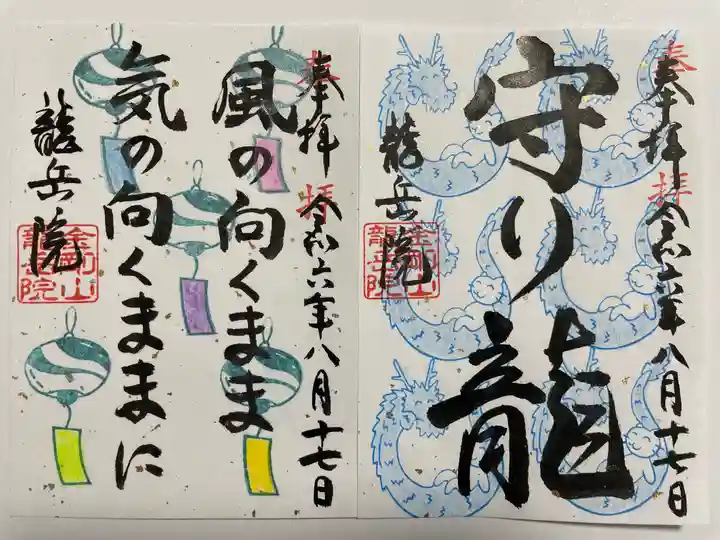 奉拝 令和六年八月十七日
奉拝
風の向くまま
気の向くままに
龍岳院
金剛山
龍岳院
奉拝 令和六年八月十七日
奉拝
守り龍
龍岳院
金剛山
龍岳院